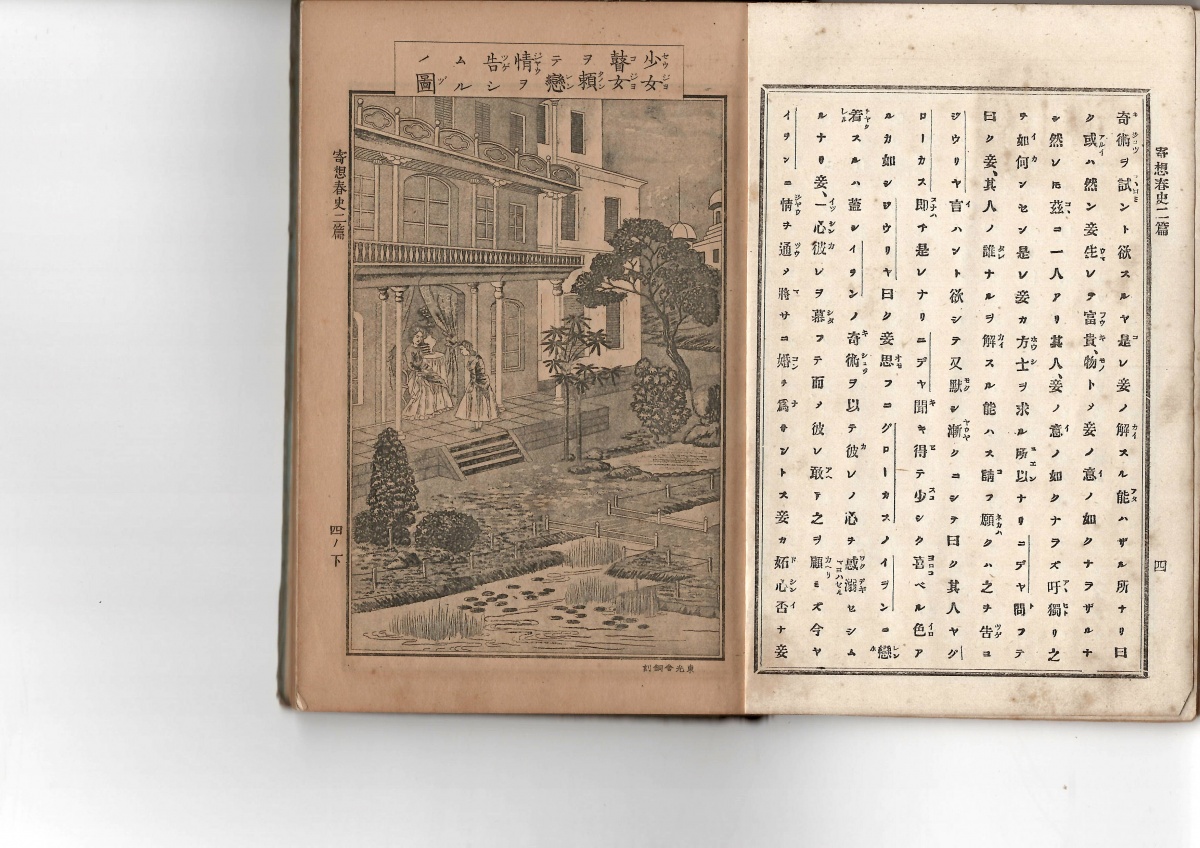 寄想春史二篇
四
奇術ヲ試ント欲スルヤ是レ妾ノ解スル能ハザル所ナリ曰
ク或ハ然ン妾生レテ富貴、物トメ妾ノ意ノ如クナラザルナ
シ然レ𪜈茲ニ一人アリ其人、妾ノ意ノ如クナラズ吁獨リ之
ヲ如何ンセン是レ妾カ方士ヲ求ル所以ナリニデヤ問フテ
曰ク妾、其人ノ誰ナルヲ解スル能ハス請フ願クハ之ヲ告ヨ
ジウリヤ言ハント欲シテ又默シ漸クニシテ曰ク其人ヤグ
ローカス即チ是レナリニデヤ聞キ得テ少シク喜ベル色ア
ルカ如シジウリヤ曰ク妾思フニグローカスノイヲンニ戀
着スルハ蓋シイヲンノ奇術ヲ以テ彼レノ心ヲ感溺セシム
ルナリ妾、一心彼レヲ慕フテ而メ彼レ敢テ之ヲ顧ミズ今ヤ
イヲンニ情ヲ通メ將サニ婚ヲ爲サントス妾カ妬心否ナ妾
少女瞽女ヲ頼テ戀情ヲ告シムルノ圖
東光會銅刻
寄想春史二篇
四ノ下